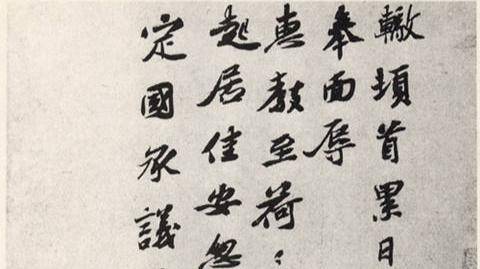 轍頓首累日
奉面辱
惠教至荷〻
起居佳安忽
定國承議